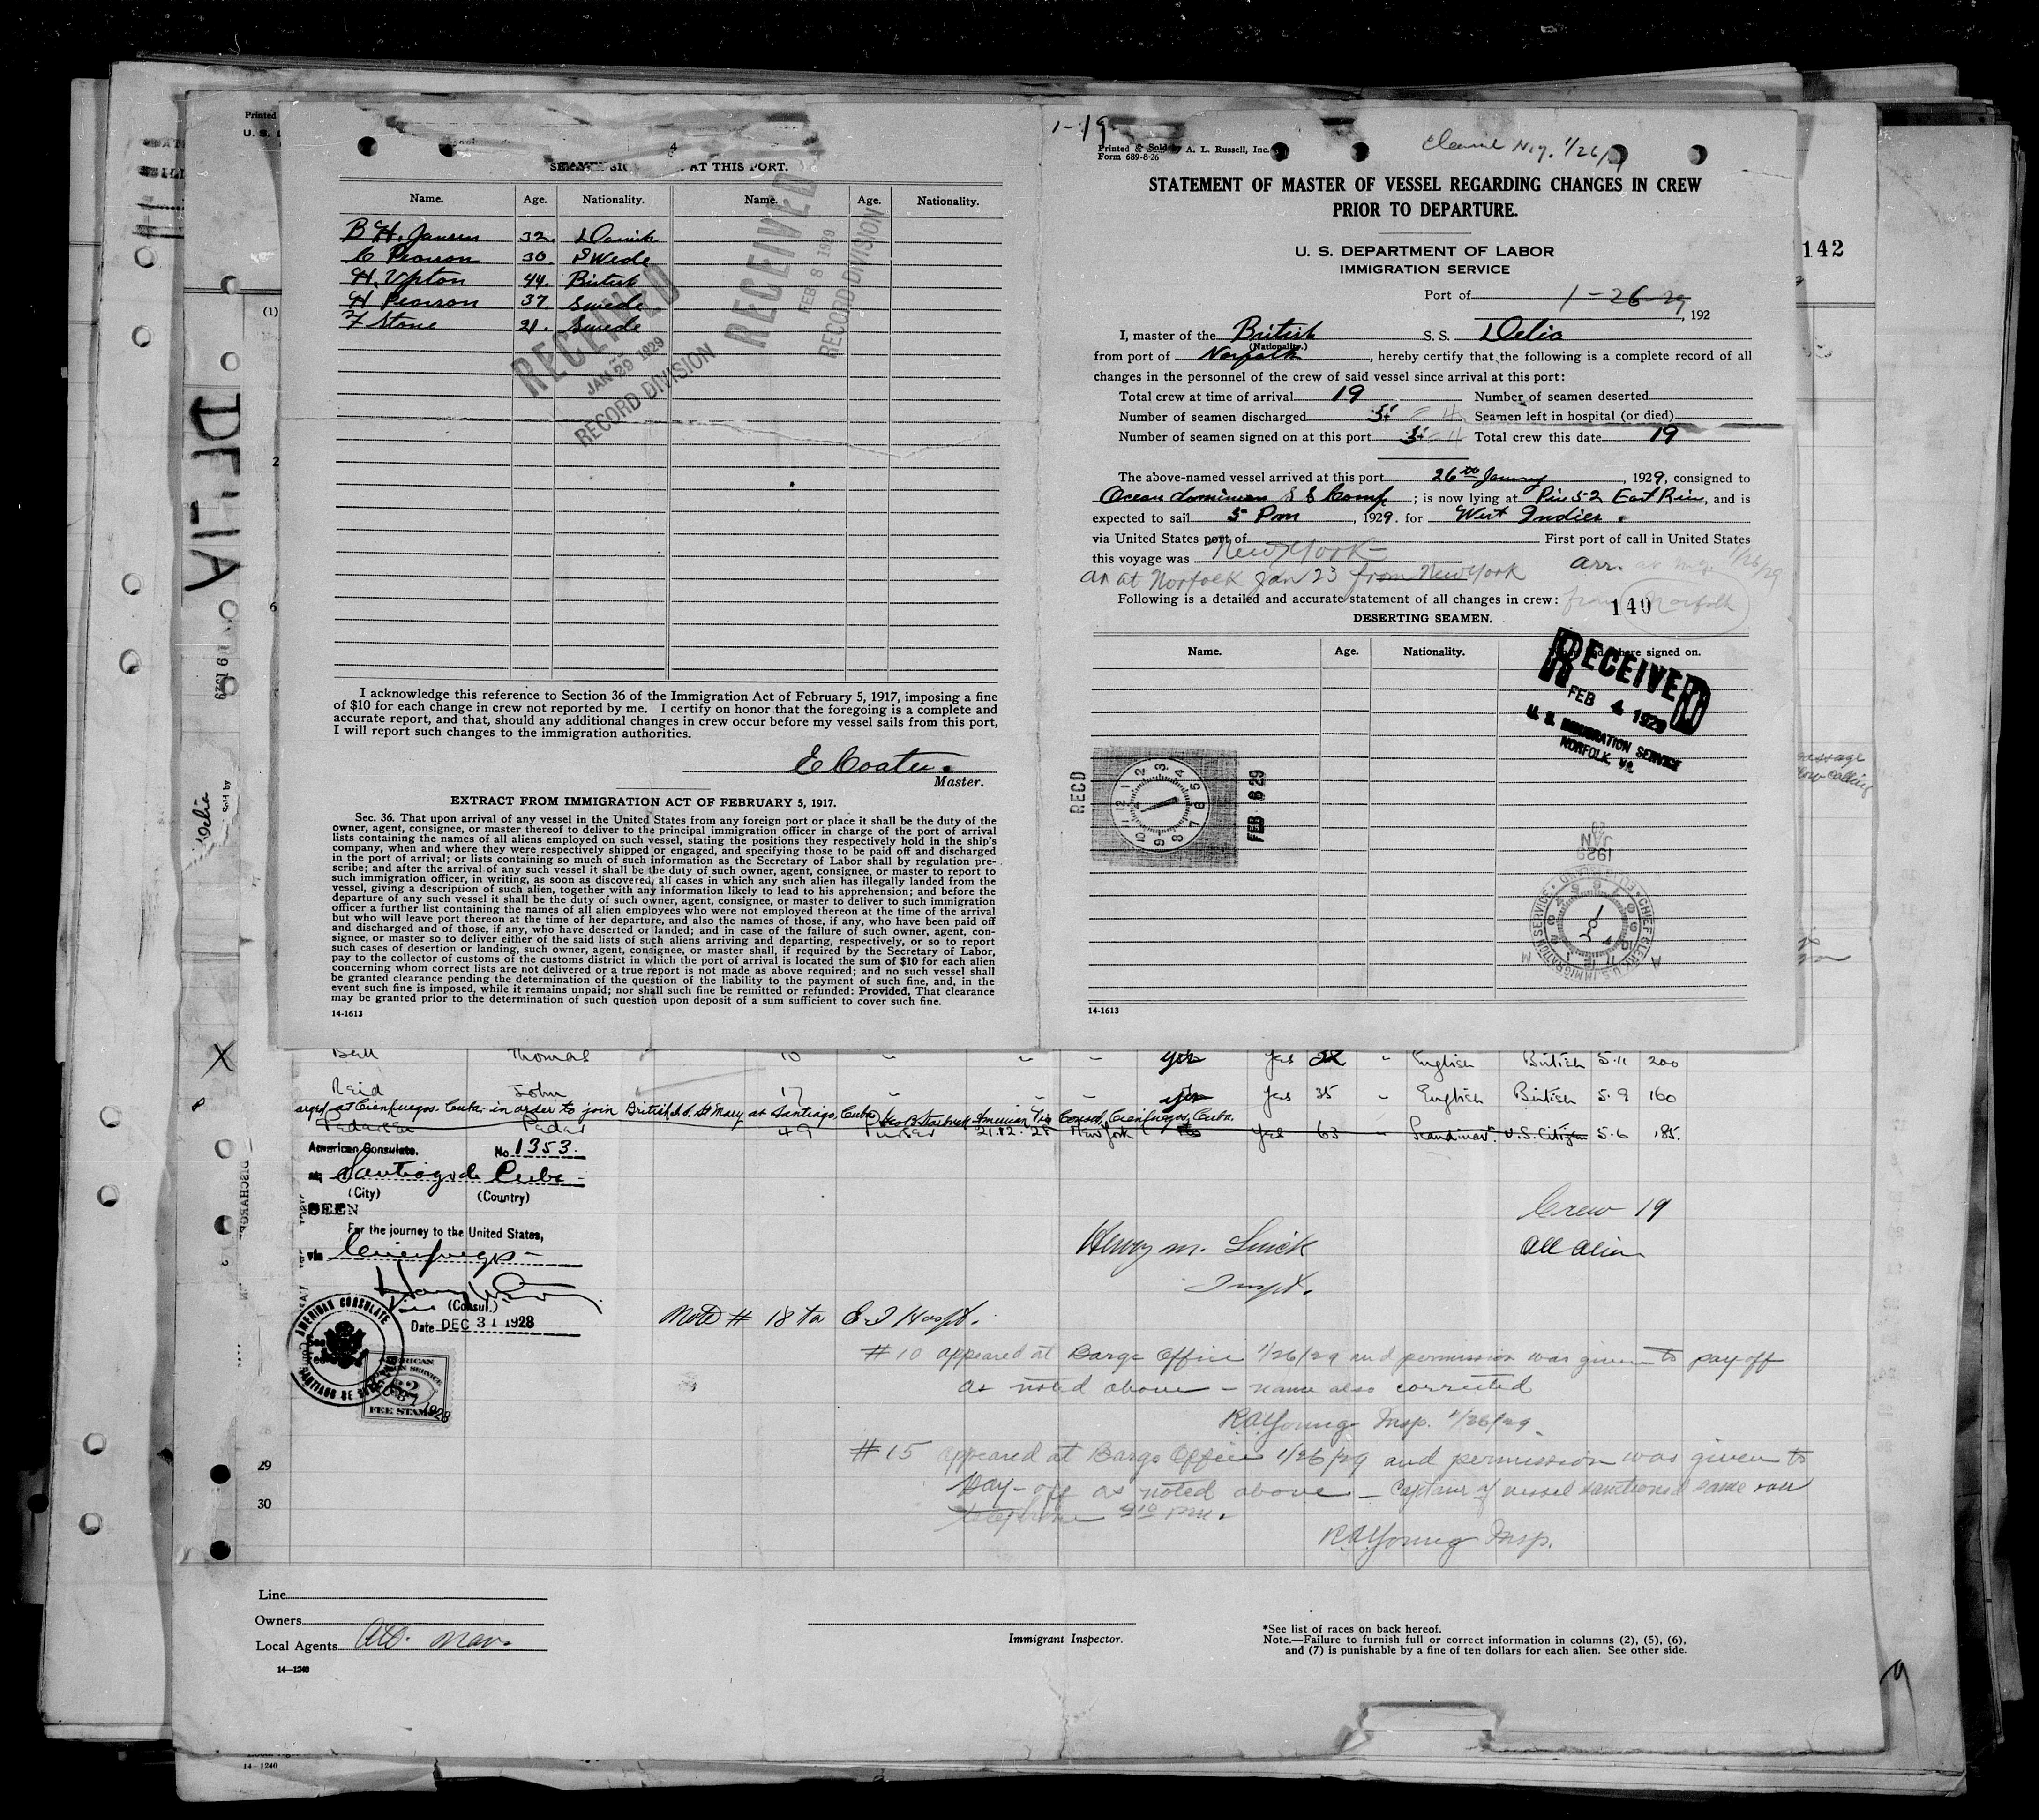 4
SEAMEN AT THIS PORT.
Name. Age. Nationality. Name. Age. Nationality.
B H. Jansen 32. Danish
C Pearson 30. Swede
H. Upton 44. British
H Pearson 37. Swede
F Stone 21. Swede
RECEIVED
JAN 29 1929
RECORD DIVISION
RECEIVED
FEB 8 1929
RECORD DIVISION
I acknowledge this reference to Section 36 of the Immigration Act of February 5, 1917, imposing a fine
of $10 for each change in crew not reported by me. I certify on honor that the foregoing is a complete and
accurate report, and that, should any additional changes in crew occur before my vessel sails from this port,
I will report such changes to the immigration authorities.
E Coates.
Master.
EXTRACT FROM IMMIGRATION ACT OF FEBRUARY 5, 1917.
Sec. 36. That upon arrival of any vessel in the United States from any foreign port or place it shall be the duty of the
owner, agent, consignee, or master thereof to deliver to the principal immigration officer in charge of the port of arrival
lists containing the names of all aliens employed on such vessel, stating the positions they respectively hold in the ship's
company, when and where they were respectively shipped or engaged, and specifying those to be paid off and discharged
in the port of arrival; or lists containing so much of such information as the Secretary of Labor shall by regulation pre-
scribe; and after the arrival of any such vessel it shall be the duty of such owner, agent, consignee, or master to report to
such immigration officer, in writing, as soon as discovered, all cases in which any such alien has illegally landed from the
vessel, giving a description of such alien, together with any information likely to lead to his apprehension; and before the
departure of any such vessel it shall be the duty of such owner, agent, consignee, or master to deliver to such immigration
officer a further list containing the names of all alien employees who were not employed thereon at the time of the arrival
but who will leave port thereon at the time of her departure, and also the names of those, if any, who have been paid off
and discharged and of those, if any, who have deserted or landed; and in case of the failure of such owner, agent, con-
signee, or master so to deliver either of the said lists of such aliens arriving and departing, respectively, or so to report
such cases of desertion or landing, such owner, agent, consignee, or master shall, if required by the Secretary of Labor,
pay to the collector of customs of the customs district in which the port of arrival is located the sum of $10 for each alien
concerning whom correct lists are not delivered or a true report is not made as above required; and no such vessel shall
be granted clearance pending the determination of the question of the liability to the payment of such fine, and, in the
event such fine is imposed, while it remains unpaid; nor shall such fine be remitted or refunded: Provided, That clearance
may be granted prior to the determination of such question upon deposit of a sum sufficient to cover such fine.
14-1613
1-19
Printed & Sold by A. L. Russell, Inc.
Form 689-8-26
N.Y. 1/26/29
STATEMENT OF MASTER OF VESSEL REGARDING CHANGES IN CREW
PRIOR TO DEPARTURE.
U. S. DEPARTMENT OF LABOR
IMMIGRATION SERVICE
Port of 1-26-29
, 192
I, master of the British S. S. Delia
(Nationality.)
from port of Norfolk, hereby certify that the following is a complete record of all
changes in the personnel of the crew of said vessel since arrival at this port:
Total crew at time of arrival 19 Number of seamen deserted
Number of seamen discharged 5 = 4 Seamen left in hospital (or died)
Number of seamen signed on at this port 5 = 4 Total crew this date 19
The above-named vessel arrived at this port 26th January, 1929, consigned to
Ocean dominion S S Comp; is now lying at Pier 52 East River, and is
expected to sail 5 Pm, 1929. for West Indies.
via United States port of First port of call in United States
this voyage was New York arr. at 1/26/29
arr at Norfolk Jan 23 from New York
Following is a detailed and accurate statement of all changes in crew: from Norfolk
140
DESERTING SEAMEN.
Name. Age. Nationality. When and where signed on.
RECEIVED
FEB 4 1929
U. S. IMMIGRATION SERVICE
NORFOLK, VA.
RECD
12 1 2 3 4 5 6 7 8 9 10 11
FEB 6 29
JAN
1929
CHIEF CLERK, U.S. IMMIGRATION SERVICE
ELLIS ISLAND
14-1613
142
Printed
U. S.
(1)
2
3
6
DELIA
1929
Delia
X
Bell Thomas 10 " " " yes yes " English British 5.11 200
Reid John 17 " yes yes 35 " English British 5.9 160
at Cienfuegos. Cuba. in order to join British S.S. St Mary at Santiago, Cuba American Vice Consul, Cienfuegos, Cuba.
Pedersen Peder 49 21.12.28 New York yes 63 " Scandinav. U.S. Citizen 5.6 185.
American Consulate. No. 1353.
at Santiago de Cuba
(City) (Country)
SEEN
For the journey to the United States,
via Cienfuegos
Vice (Consul.)
Date DEC 31 1928
AMERICAN CONSULATE
SANTIAGO DE CUBA
AMERICAN
SERVICE
2
FEE STAMP
Crew 19
All Alien
Henry M.
Inspt.
Note # 18 to E. I Hospt.
#10 appeared at Barge Office 1/26/29 and permission was given to pay off
as noted above - name also corrected
R.A. Young Insp. 1/26/29.
#15 appeared at Barge Office 1/26/29 and permission was given to
pay-off as noted above - Captain of vessel sanctioned same
telephone 4:10 P.M.
R.A. Young Insp.
29
30
Line
Owners
Local Agents
14—1240
Immigrant Inspector.
*See list of races on back hereof.
Note.—Failure to furnish full or correct information in columns (2), (5), (6),
and (7) is punishable by a fine of ten dollars for each alien. See other side.
9
14-1240